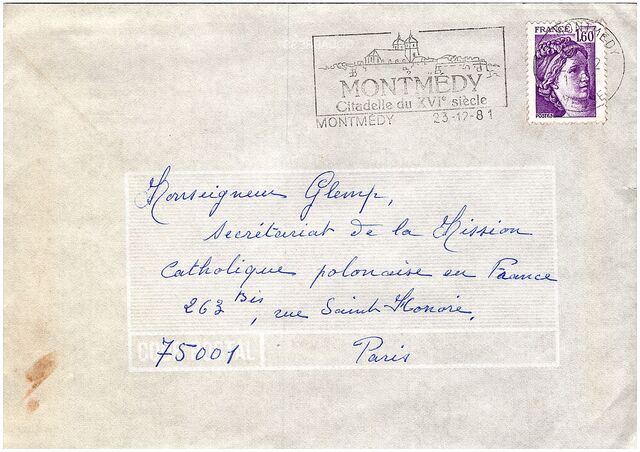 MONTMÉDY
Citadelle du XVIe siècle
MONTMÉDY 23-12-81
FRANCE
1,60
POSTES
MONTMÉDY
Monseigneur Glemp,
Secrétariat de la Mission
Catholique polonaise en France
263 Bis, rue Saint-Honoré,
75001 Paris